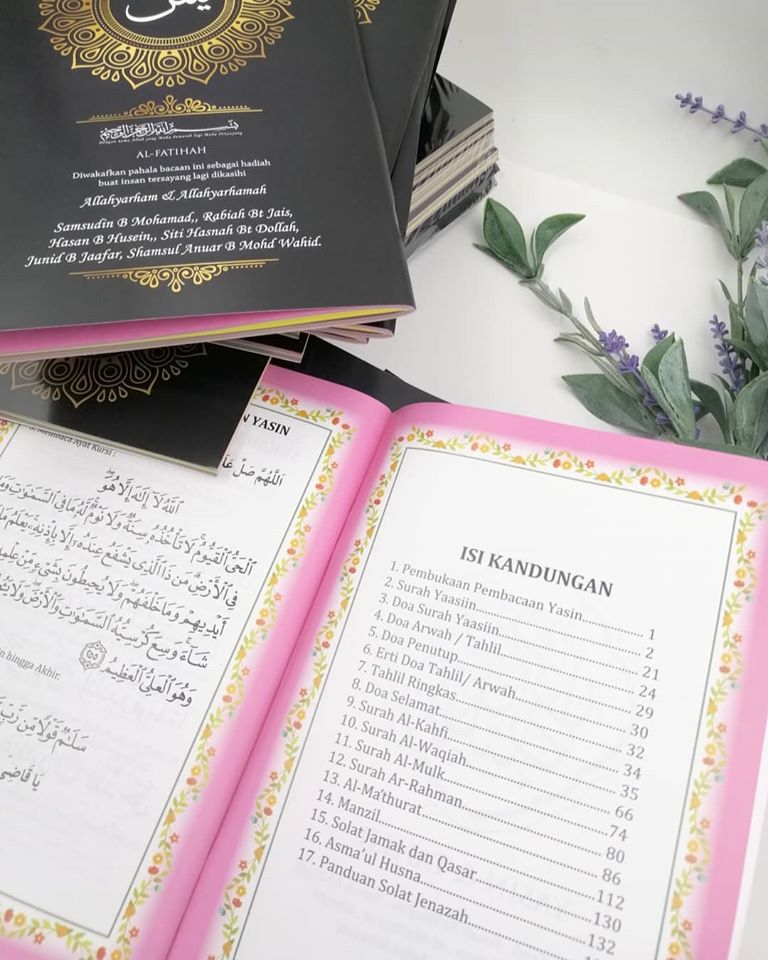 يس
بِسْمِ اللهِ الرَّحْمٰنِ الرَّحِيْمِ
Dengan nama Allah yang Maha Pemurah lagi Maha Penyayang
AL-FATIHAH
Diwakafkan pahala bacaan ini sebagai hadiah
buat insan tersayang lagi dikasihi
Allahyarham & Allahyarhamah
Samsudin B Mohamad,, Rabiah Bt Jais,
Hasan B Husein,, Siti Hasnah Bt Dollah,
Junid B Jaafar, Shamsul Anuar B Mohd Wahid.
N YASIN
اَللّٰهُمَّ صَلِّ
Membaca Ayat Kursi :
اَللّٰهُ لَا إِلٰهَ إِلَّا هُوَ
الْحَيُّ الْقَيُّومُ لَا تَأْخُذُهُ سِنَةٌ وَلَا نَوْمٌ لَهُ مَا فِي السَّمٰوٰتِ وَمَا
فِي الْأَرْضِ مَنْ ذَا الَّذِي يَشْفَعُ عِنْدَهُ إِلَّا بِإِذْنِهِ يَعْلَمُ مَا
أَيْدِيهِمْ وَمَا خَلْفَهُمْ وَلَا يُحِيطُونَ بِشَيْءٍ مِنْ عِلْمِهِ
شَاءَ وَسِعَ كُرْسِيُّهُ السَّمٰوٰتِ وَالْأَرْضَ وَلَا
وَهُوَ الْعَلِيُّ الْعَظِيمُ ٢٥٥
hingga Akhir.
سَلٰمٌ قَوْلًا مِنْ رَبٍّ
يَا قَاضِيَ
ISI KANDUNGAN
1. Pembukaan Pembacaan Yasin................ 1
2. Surah Yaasiin................ 2
3. Doa Surah Yaasiin................ 21
4. Doa Arwah / Tahlil................ 24
5. Doa Penutup................ 29
6. Erti Doa Tahlil/ Arwah................ 30
7. Tahlil Ringkas................ 32
8. Doa Selamat................ 34
9. Surah Al-Kahfi................ 35
10. Surah Al-Waqiah................ 66
11. Surah Al-Mulk................ 74
12. Surah Ar-Rahman................ 80
13. Al-Ma'thurat................ 86
14. Manzil................ 112
15. Solat Jamak dan Qasar................ 130
16. Asma'ul Husna................ 132
17. Panduan Solat Jenazah................